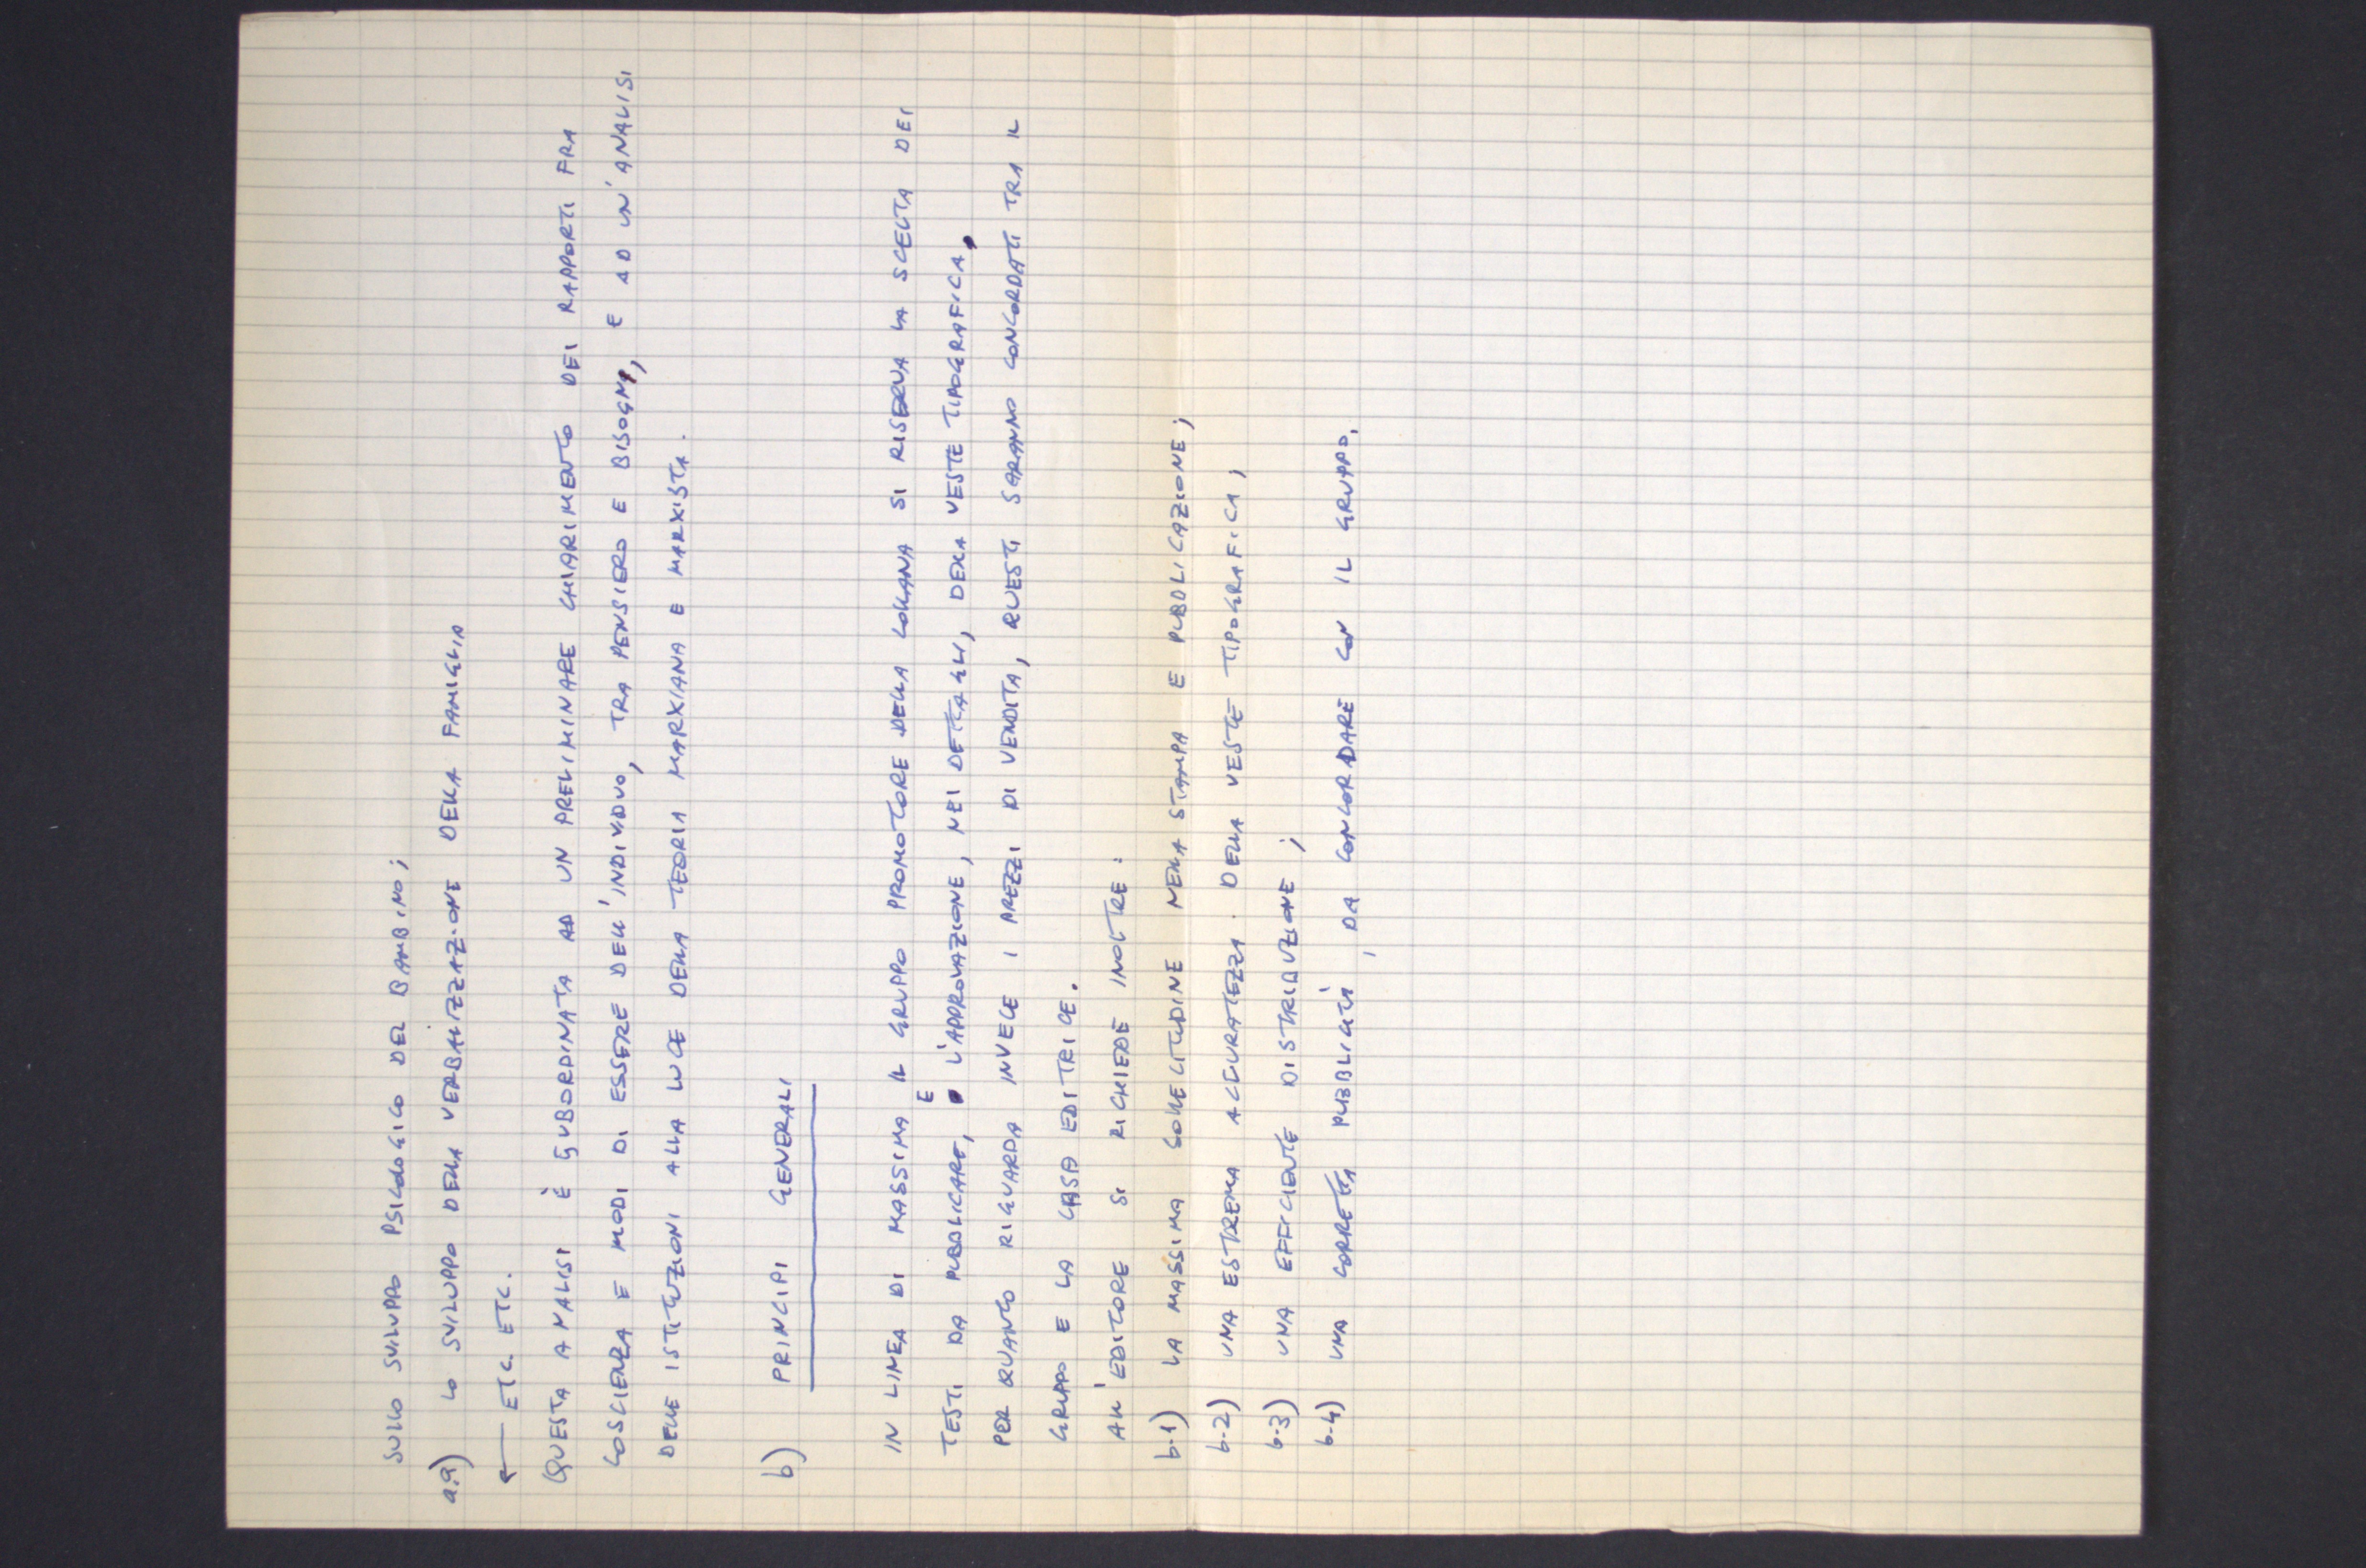 SULLO SVILUPPO PSICOLOGICO DEL BAMBINO;
a.9) LO SVILUPPO DELLA VERBALIZZAZIONE DELLA FAMIGLIA
← ETC. ETC.
QUESTA ANALISI È SUBORDINATA AD UN PRELIMINARE CHIARIMENTO DEI RAPPORTI FRA
COSCIENZA E MODI DI ESSERE DELL'INDIVIDUO, TRA PENSIERO E BISOGNI, E AD UN'ANALISI
DELLE ISTITUZIONI ALLA LUCE DELLA TEORIA MARXIANA E MARXISTA.
b) PRINCIPI GENERALI
IN LINEA DI MASSIMA IL GRUPPO PROMOTORE DELLA COLLANA SI RISERVA LA SCELTA DEI
TESTI DA PUBBLICARE, E L'APPROVAZIONE, NEI DETTAGLI, DELLA VESTE TIPOGRAFICA,
PER QUANTO RIGUARDA INVECE I PREZZI DI VENDITA, QUESTI SARANNO CONCORDATI TRA IL
GRUPPO E LA CASA EDITRICE.
ALL'EDITORE SI RICHIEDE INOLTRE:
b.1) LA MASSIMA SOLLECITUDINE NELLA STAMPA E PUBBLICAZIONE;
b.2) UNA ESTREMA ACCURATEZZA DELLA VESTE TIPOGRAFICA;
b.3) UNA EFFICIENTE DISTRIBUZIONE;
b.4) UNA CORRETTA PUBBLICITÀ, DA CONCORDARE CON IL GRUPPO.